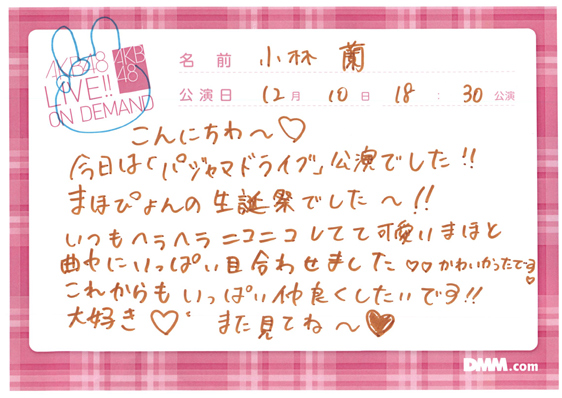 AKB48
LIVE!!
ON DEMAND
AKB
48
名前 小林 蘭
公演日 12月 10日 18:30公演
こんにちわ～♡
今日は「パジャマドライブ」公演でした!!
まほぴょんの生誕祭でした～!!
いつもヘラヘラニコニコしてて可愛いまほと
曲中にいっぱい目合わせました♡♡かわいかったでーす♡
これからもいっぱい仲良くしたいです!!
大好き♡ また見てね～♥
DMM.com